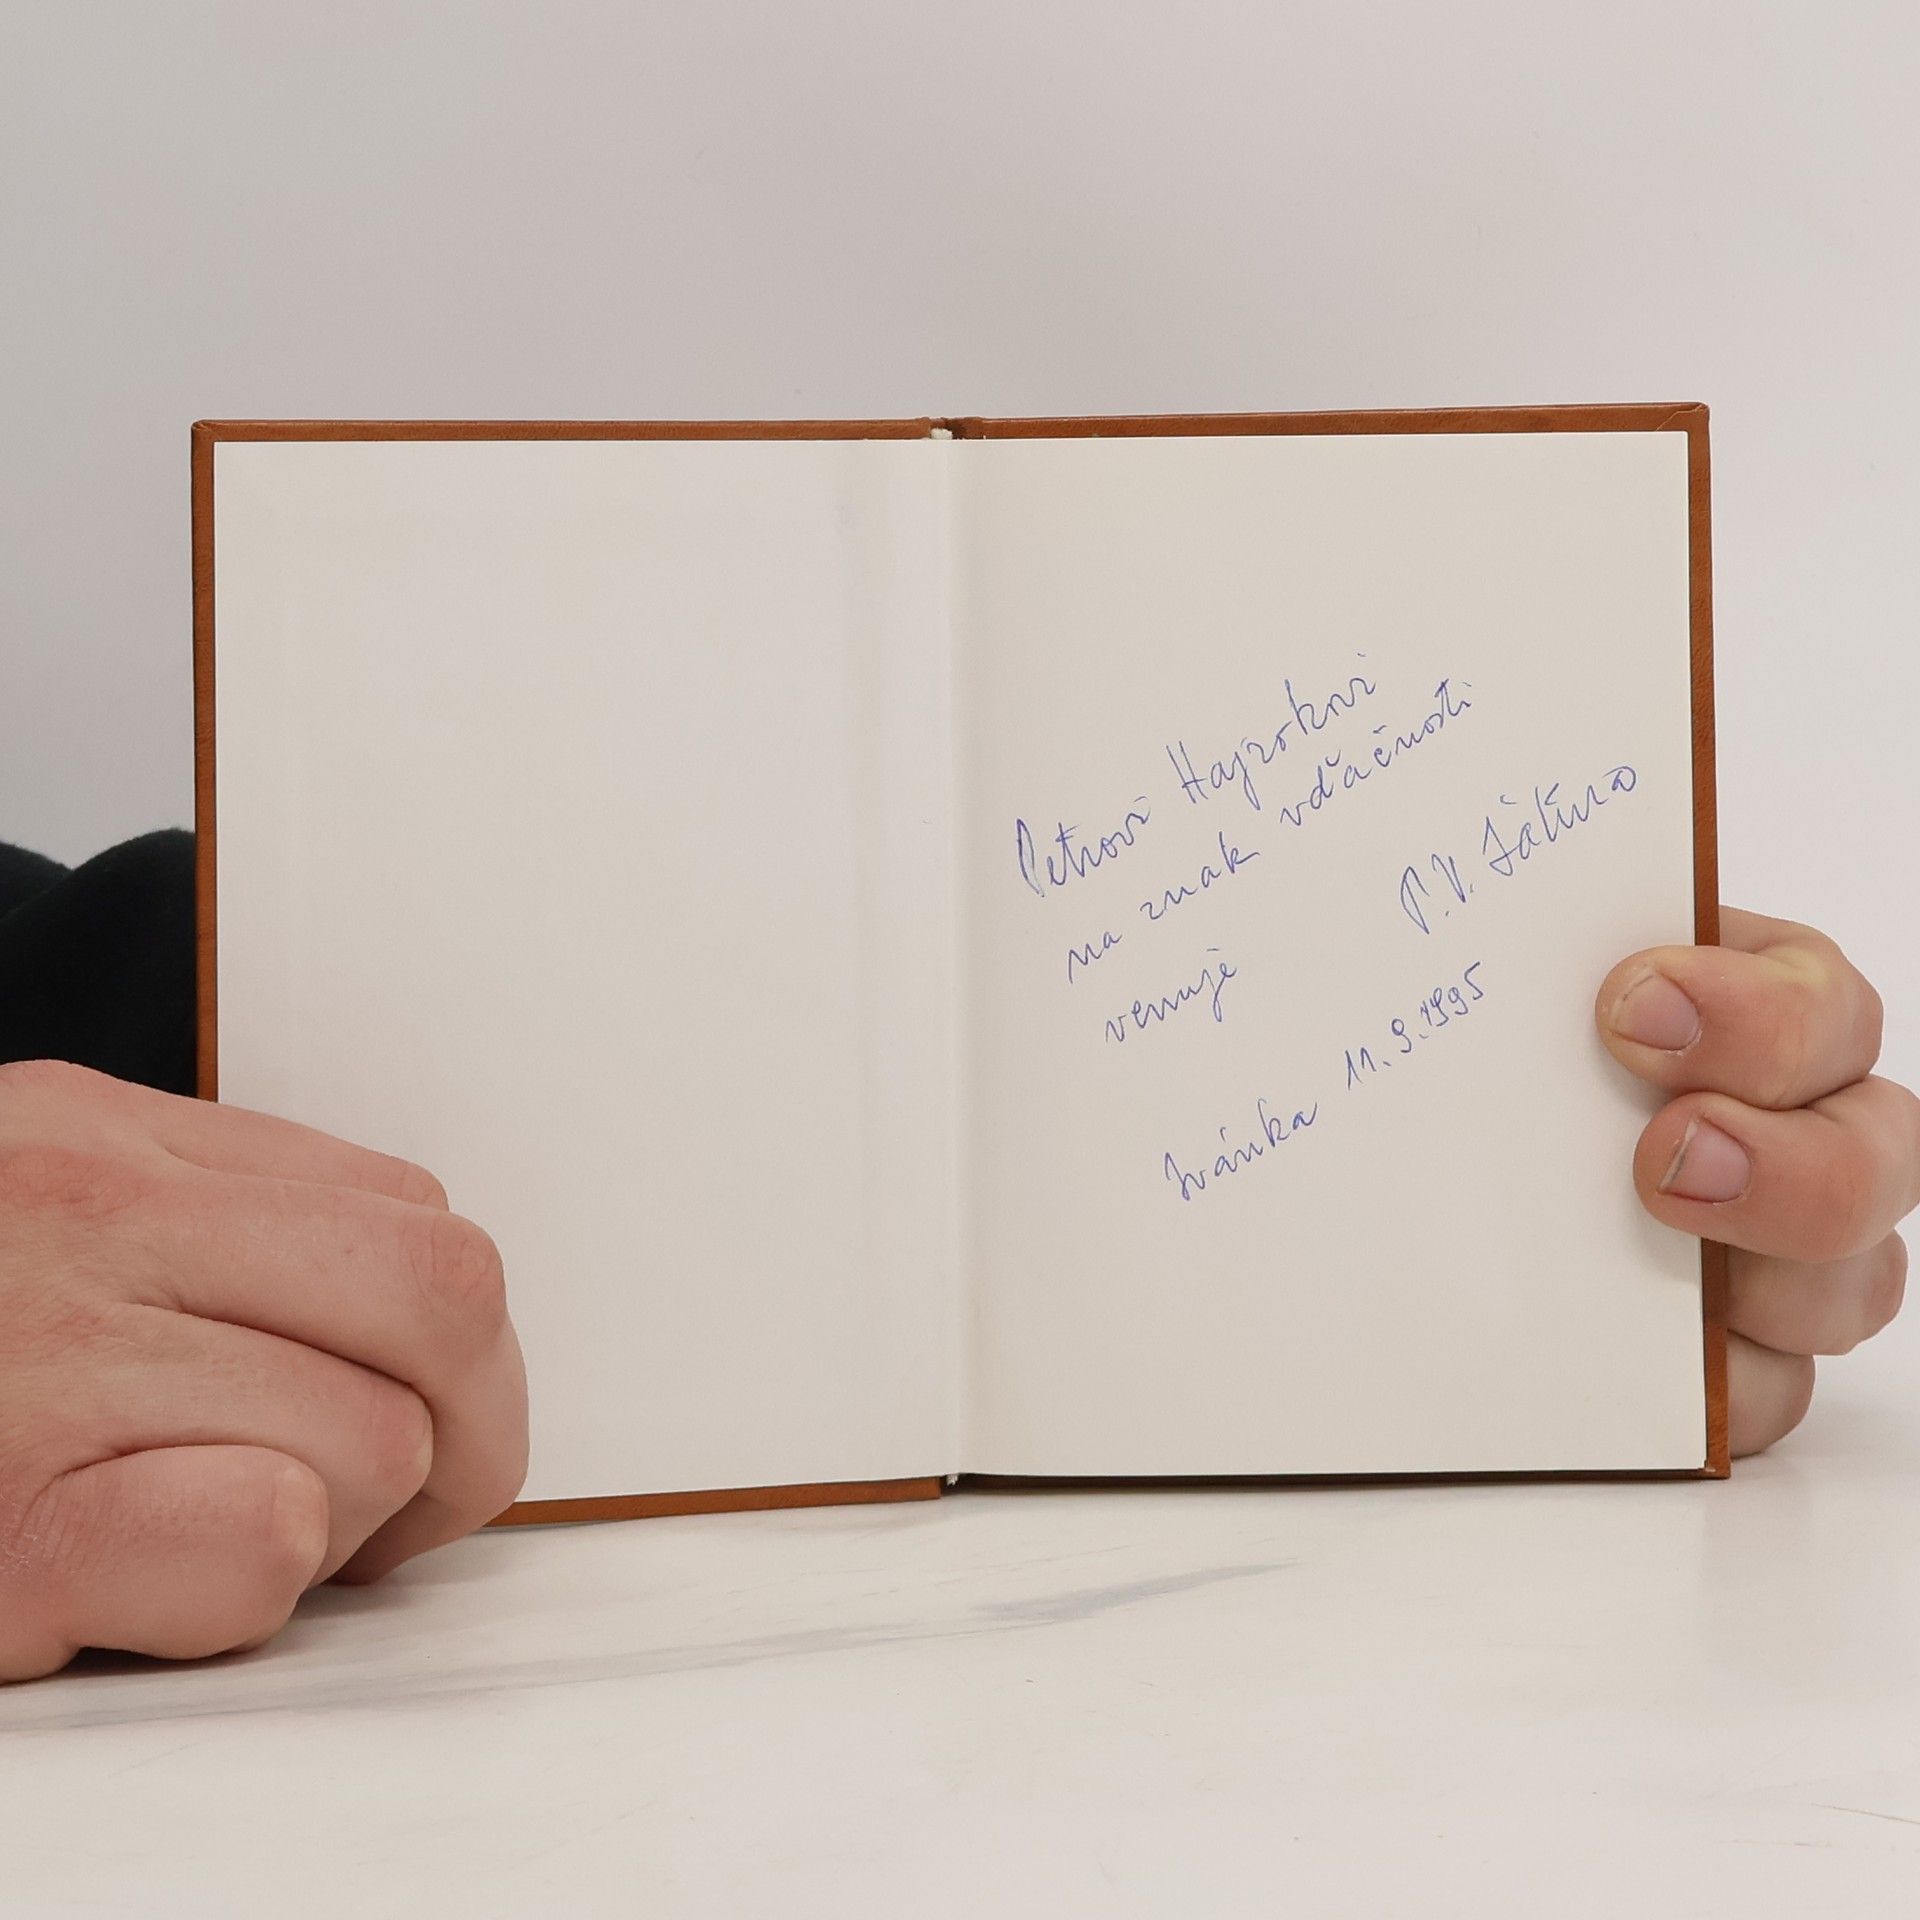 Petrovi Hajzokovi
na znak vďačnosti
venuje P. V.
Ivánka 11.9.1995